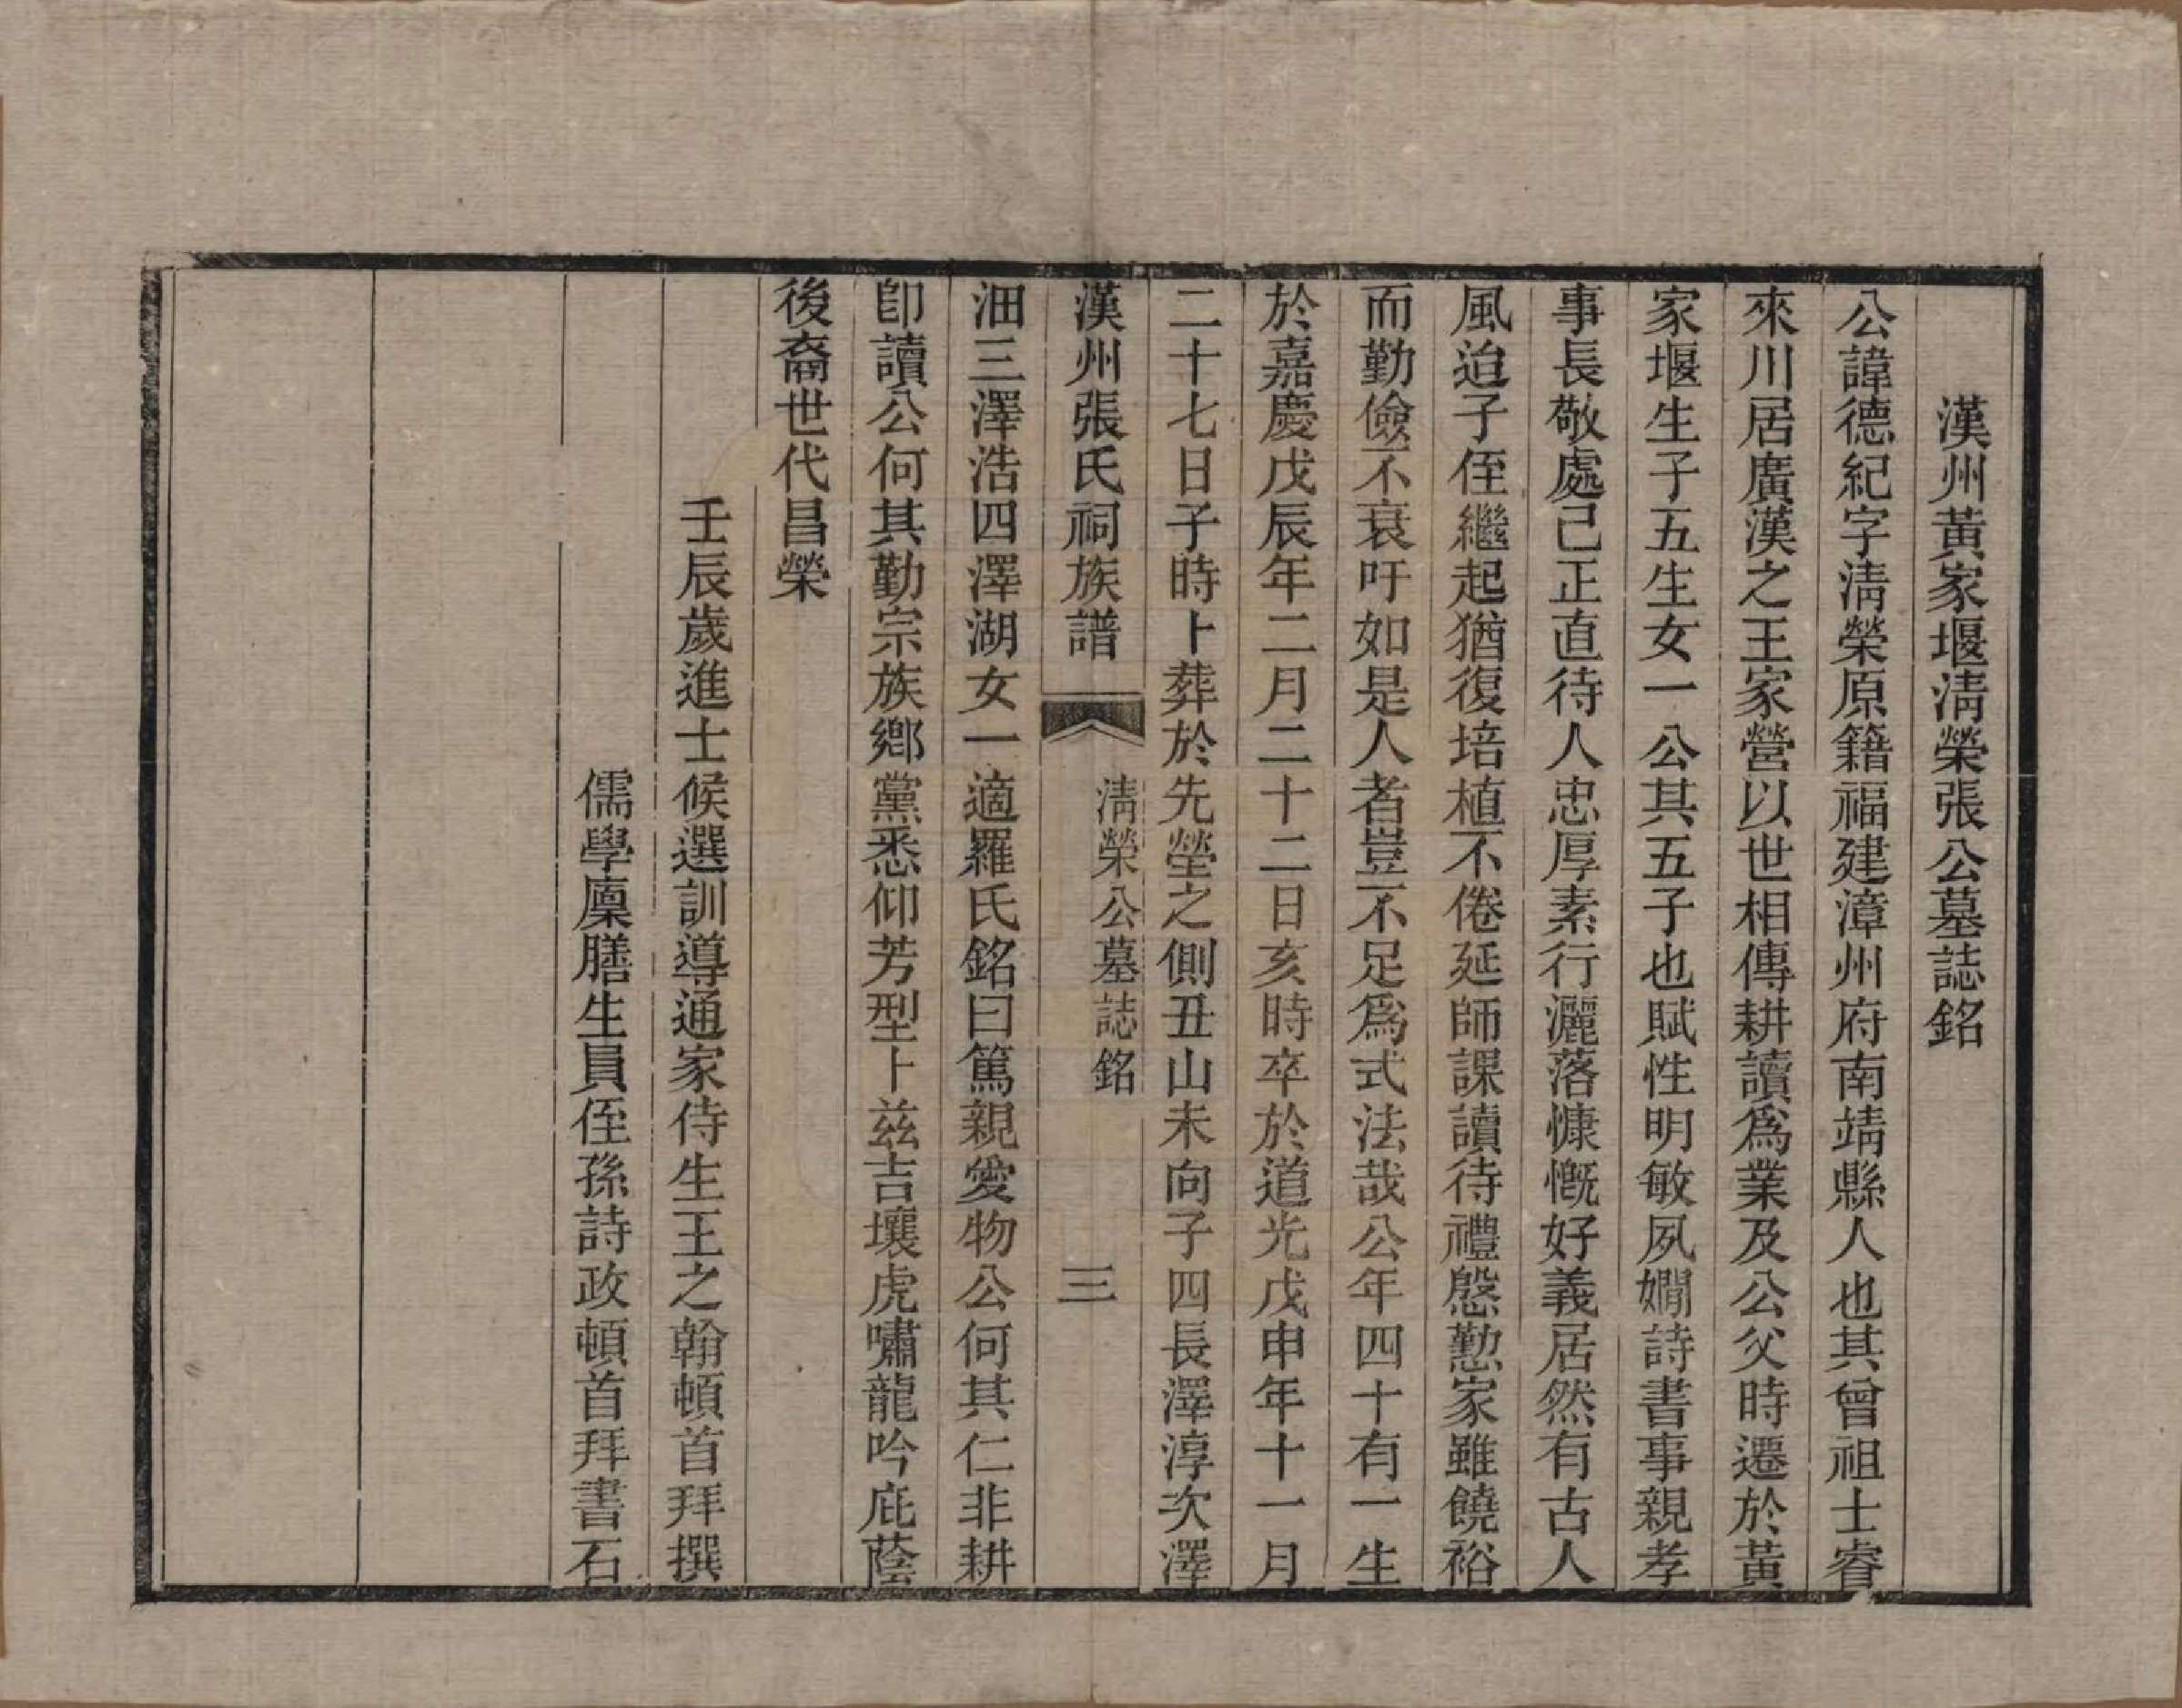 漢州黃家堰淸榮張公墓誌銘
公諱德紀字淸榮原籍福建漳州府南靖縣人也其曾祖士睿
來川居廣漢之王家營以世相傳耕讀爲業及公父時遷於黃
家堰生子五生女一公其五子也賦性明敏夙嫺詩書事親孝
事長敬處己正直待人忠厚素行灑落慷慨好義居然有古人
風迨子侄繼起猶復培植不倦延師課讀待禮慇懃家雖饒裕
而勤儉不衰吁如是人者豈不足爲式法哉公年四十有一生
於嘉慶戊辰年二月二十二日亥時卒於道光戊申年十一月
二十七日子時卜葬於先塋之側丑山未向子四長澤淳次澤
漢州張氏祠族譜
淸榮公墓誌銘
三
沺三澤浩四澤湖女一適羅氏銘曰篤親愛物公何其仁非耕
卽讀公何其勤宗族鄉黨悉仰芳型卜兹吉壤虎嘯龍吟庇蔭
後裔世代昌榮
壬辰歲進士候選訓導通家侍生王之翰頓首拜撰
儒學廩膳生員侄孫詩政頓首拜書石